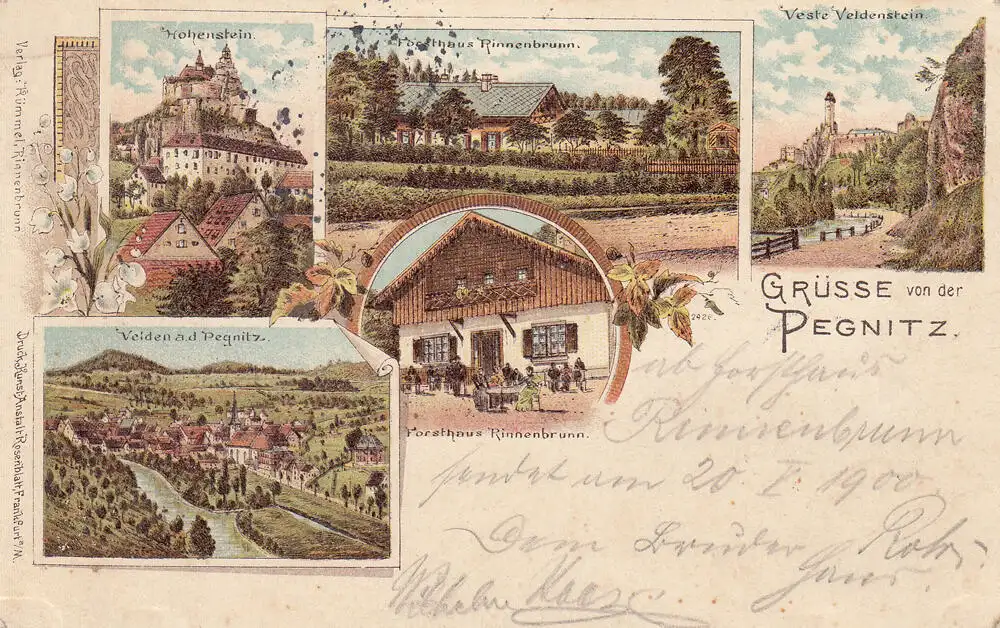 Hohenstein.
Forsthaus Rinnenbrunn.
Veste Veldenstein.
Verlag: Kümmel, Rinnenbrunn.
GRÜSSE von der
PEGNITZ.
2426
Velden a.d. Pegnitz.
Forsthaus Rinnenbrunn.
Druck Kunst-Anstalt Rosenblatt, Frankfurt a/M.
ab Forsthaus
Rinnenbrunn
sendet am 20. I. 1900
Dem Bruder
Wilhelm